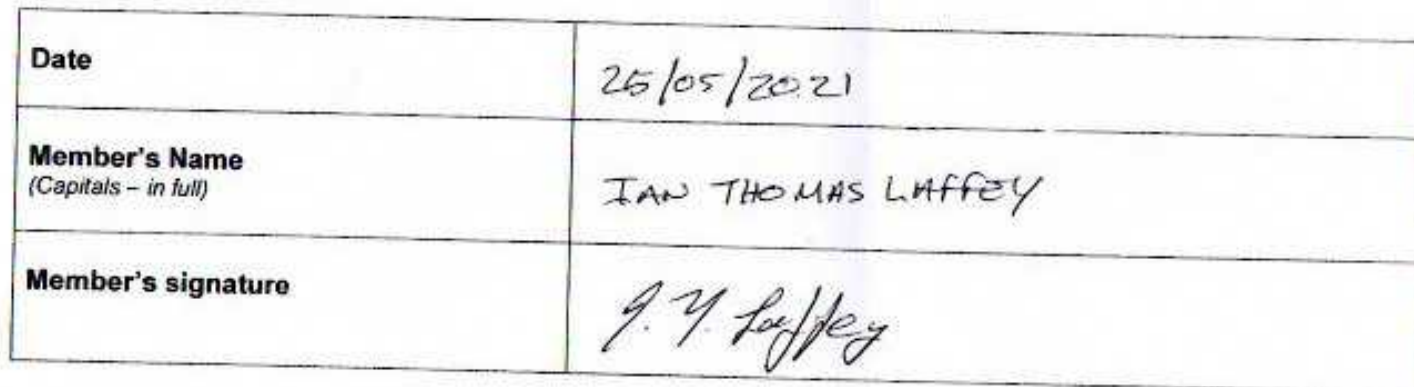 Date
25/05/2021
Member's Name
(Capitals – in full)
IAN THOMAS LAFFEY
Member's signature
I. T. Laffey